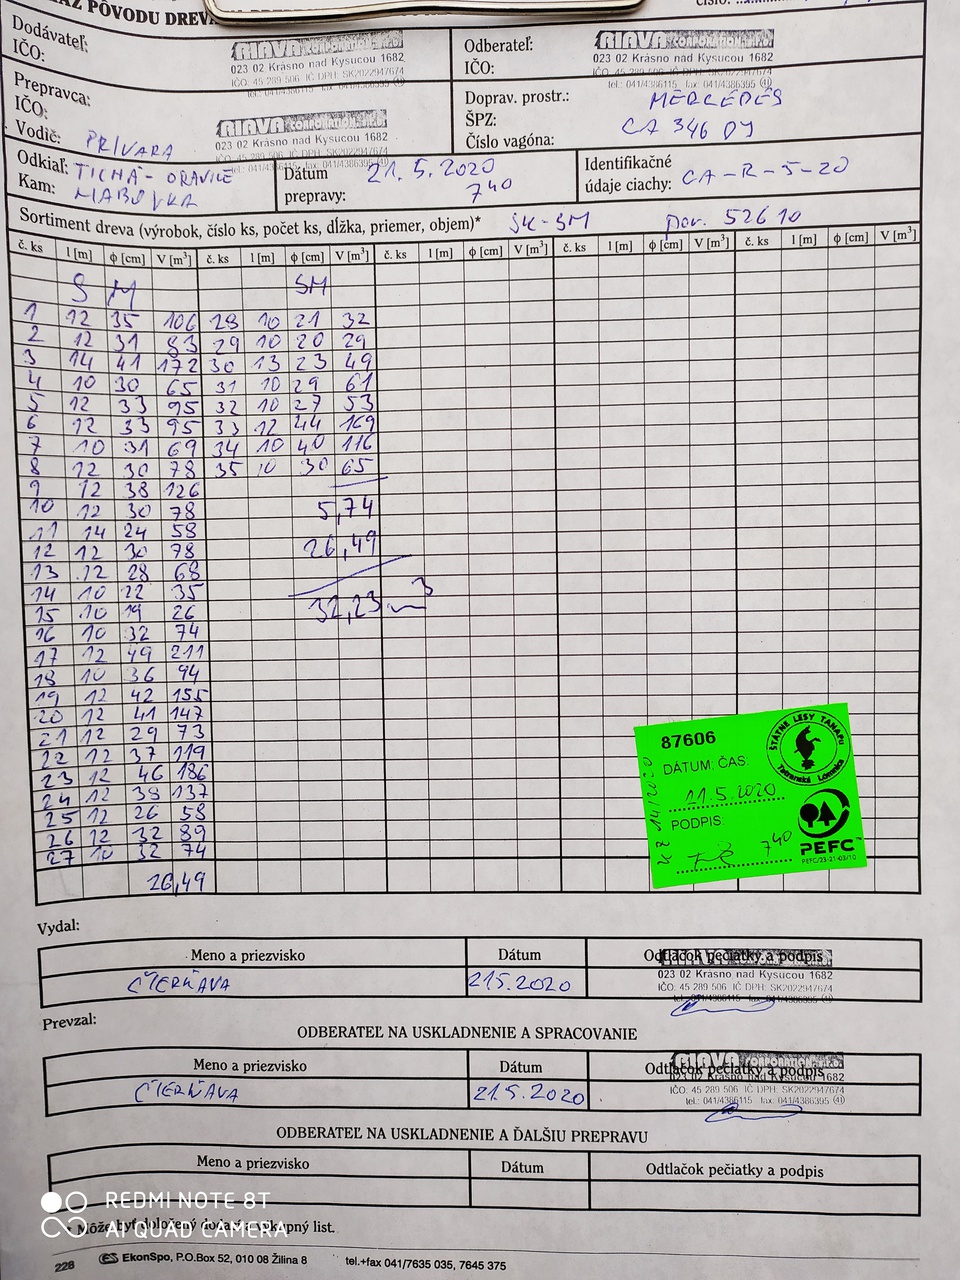 AZ PÔVODU DREVA
Dodávateľ:
IČO:
RIAVA CORPORATION
023 02 Krásno nad Kysucou 1682
IČO: 45 289 506 IČ DPH: SK2022947674
tel.: 041/4386115 fax: 041/4386395
Odberateľ:
IČO:
RIAVA CORPORATION
023 02 Krásno nad Kysucou 1682
IČO: 45 289 506 IČ DPH: SK2022947674
tel.: 041/4386115 fax: 041/4386395
Prepravca:
IČO:
Vodič: PRÍVARA
RIAVA CORPORATION
023 02 Krásno nad Kysucou 1682
IČO: 45 289 506 IČ DPH: SK2022947674
tel.: 041/4386115 fax: 041/4386395
Doprav. prostr.: MERCEDES
ŠPZ: CA 346 DY
Číslo vagóna:
Odkiaľ: TICHÁ - ORAVICE
Kam: HABOVKA
Dátum prepravy: 21.5.2020 7 40
Identifikačné údaje ciachy: CA-R-5-20
Sortiment dreva (výrobok, číslo ks, počet ks, dĺžka, priemer, objem)* SK-SM por. 52610
č. ks l [m] ϕ [cm] V [m³] č. ks l [m] ϕ [cm] V [m³] č. ks l [m] ϕ [cm] V [m³] č. ks l [m] ϕ [cm] V [m³] č. ks l [m] ϕ [cm] V [m³]
SM SM
1 12 35 106 28 10 21 32
2 12 31 83 29 10 20 29
3 14 41 172 30 13 23 49
4 10 30 65 31 10 29 61
5 12 33 95 32 10 27 53
6 12 33 95 33 12 44 169
7 10 31 69 34 10 40 116
8 12 30 78 35 10 30 65
9 12 38 126
10 12 30 78 5,74
11 14 24 58
12 12 30 78 26,49
13 12 28 68
14 10 22 35
15 10 19 26 32,23 m³
16 10 32 74
17 12 49 211
18 10 36 94
19 12 42 155
20 12 41 147
21 12 29 73
22 12 37 119
23 12 46 186
24 12 39 137
25 12 26 58
26 12 32 89
27 10 32 74
26,49
87606
DÁTUM: ČAS:
21.5.2020
PODPIS:
7 40
ŠTÁTNE LESY TANAPu
Tatranská Lomnica
PEFC
PEFC/23-21-03/10
Vydal:
Meno a priezvisko Dátum Odtlačok pečiatky a podpis
ČIERŇAVA 21.5.2020
RIAVA CORPORATION
023 02 Krásno nad Kysucou 1682
IČO: 45 289 506 IČ DPH: SK2022947674
tel.: 041/4386115 fax: 041/4386395
Prevzal:
ODBERATEĽ NA USKLADNENIE A SPRACOVANIE
Meno a priezvisko Dátum Odtlačok pečiatky a podpis
ČIERŇAVA 21.5.2020
RIAVA CORPORATION
023 02 Krásno nad Kysucou 1682
IČO: 45 289 506 IČ DPH: SK2022947674
tel.: 041/4386115 fax: 041/4386395
ODBERATEĽ NA USKLADNENIE A ĎALŠIU PREPRAVU
Meno a priezvisko Dátum Odtlačok pečiatky a podpis
REDMI NOTE 8T
AI QUAD CAMERA
* Môže byť doložený dodací a výkupný list.
228 ES EkonSpo, P.O.Box 52, 010 08 Žilina 8 tel.+fax 041/7635 035, 7645 375